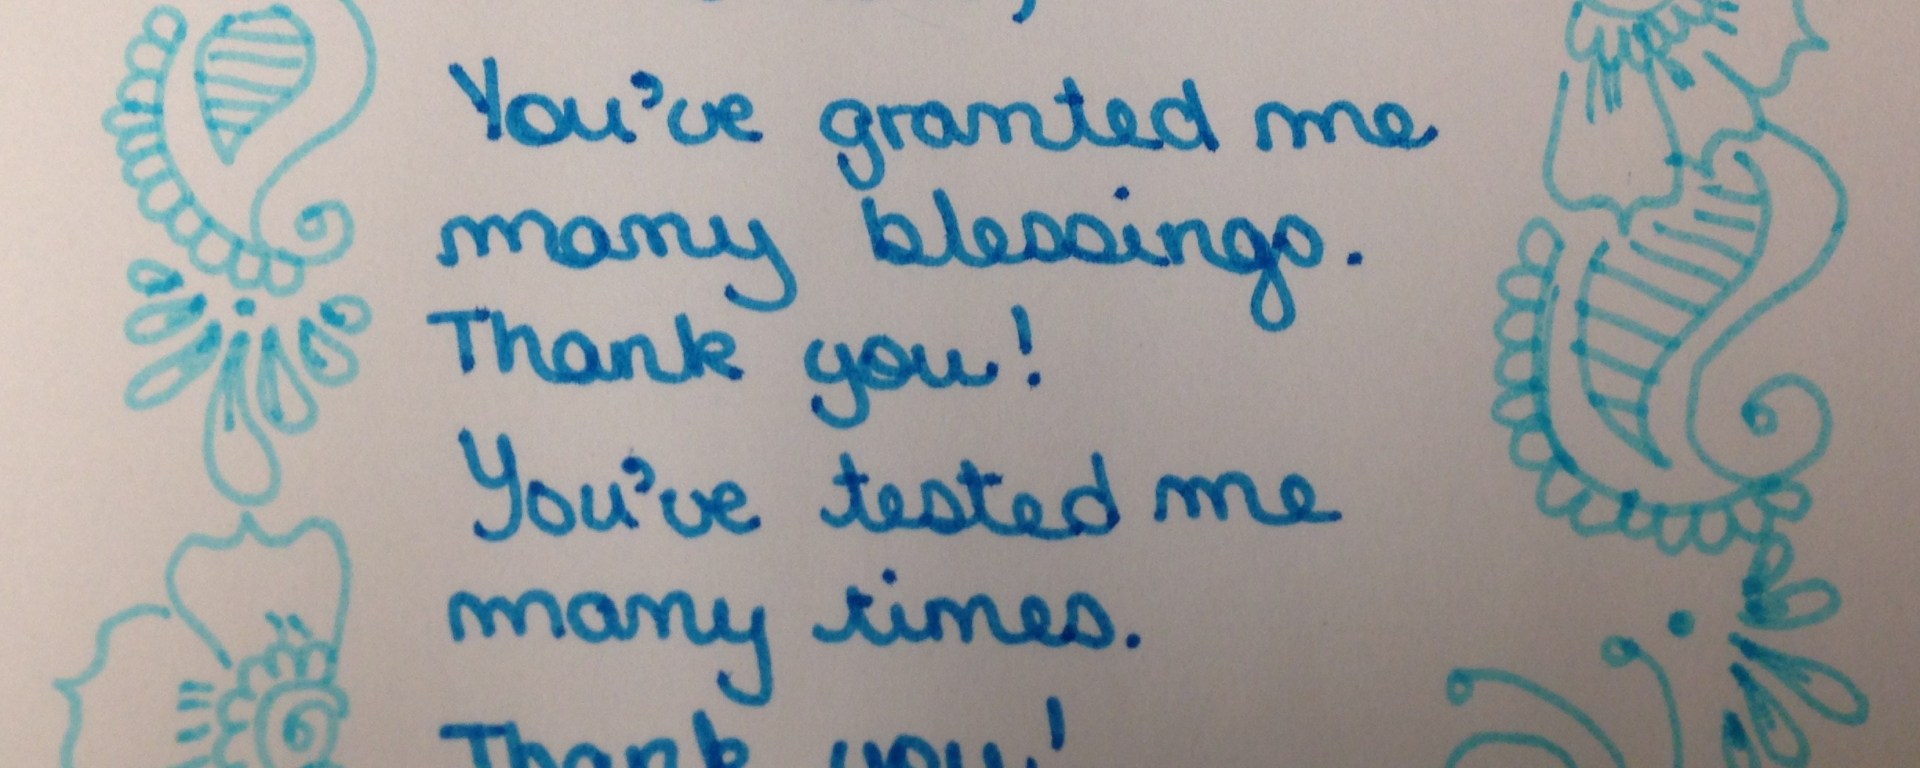 You've granted me
many blessings.
Thank you!
You've tested me
many times.
Thank you!